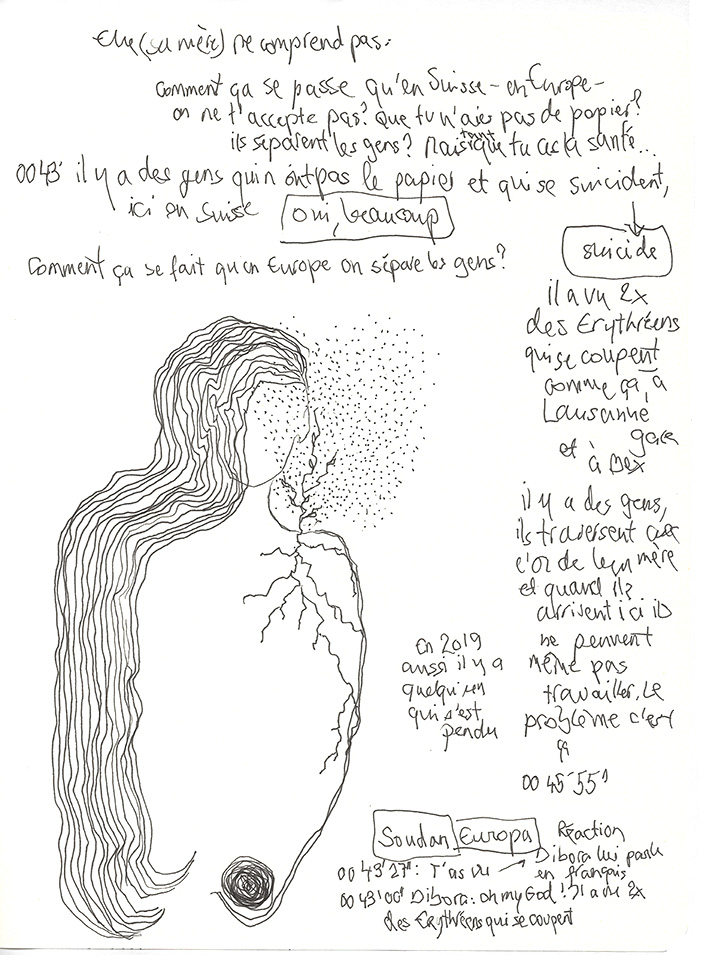 Elle (sa mère) ne comprend pas:
comment ça se passe qu'en Suisse - en Europe -
on ne t'accepte pas? que tu n'aies pas de papier?
ils séparent les gens? Mais tant que tu as la santé...
00 43' il y a des gens qui n'ont pas le papier et qui se suicident,
ici en Suisse
oui, beaucoup
suicide
Comment ça se fait qu'en Europe on sépare les gens?
il a vu 2x
des Erythréens
qui se coupent
comme ça, à
Lausanne
gare
et à Bex
il y a des gens,
ils traversent avec
l'or de leur mère
et quand ils
arrivent ici ils
ne peuvent
même pas
travailler. Le
problème c'est
ça
00 45'55"
En 2019
aussi il y a
quelqu'un
qui s'est
pendu
Soudan Europa
Réaction
00 43'27": T'as vu
Dibora lui parle
en français
00 43'00" Dibora: oh my God! Il a vu 2x
des Erythréens qui se coupent